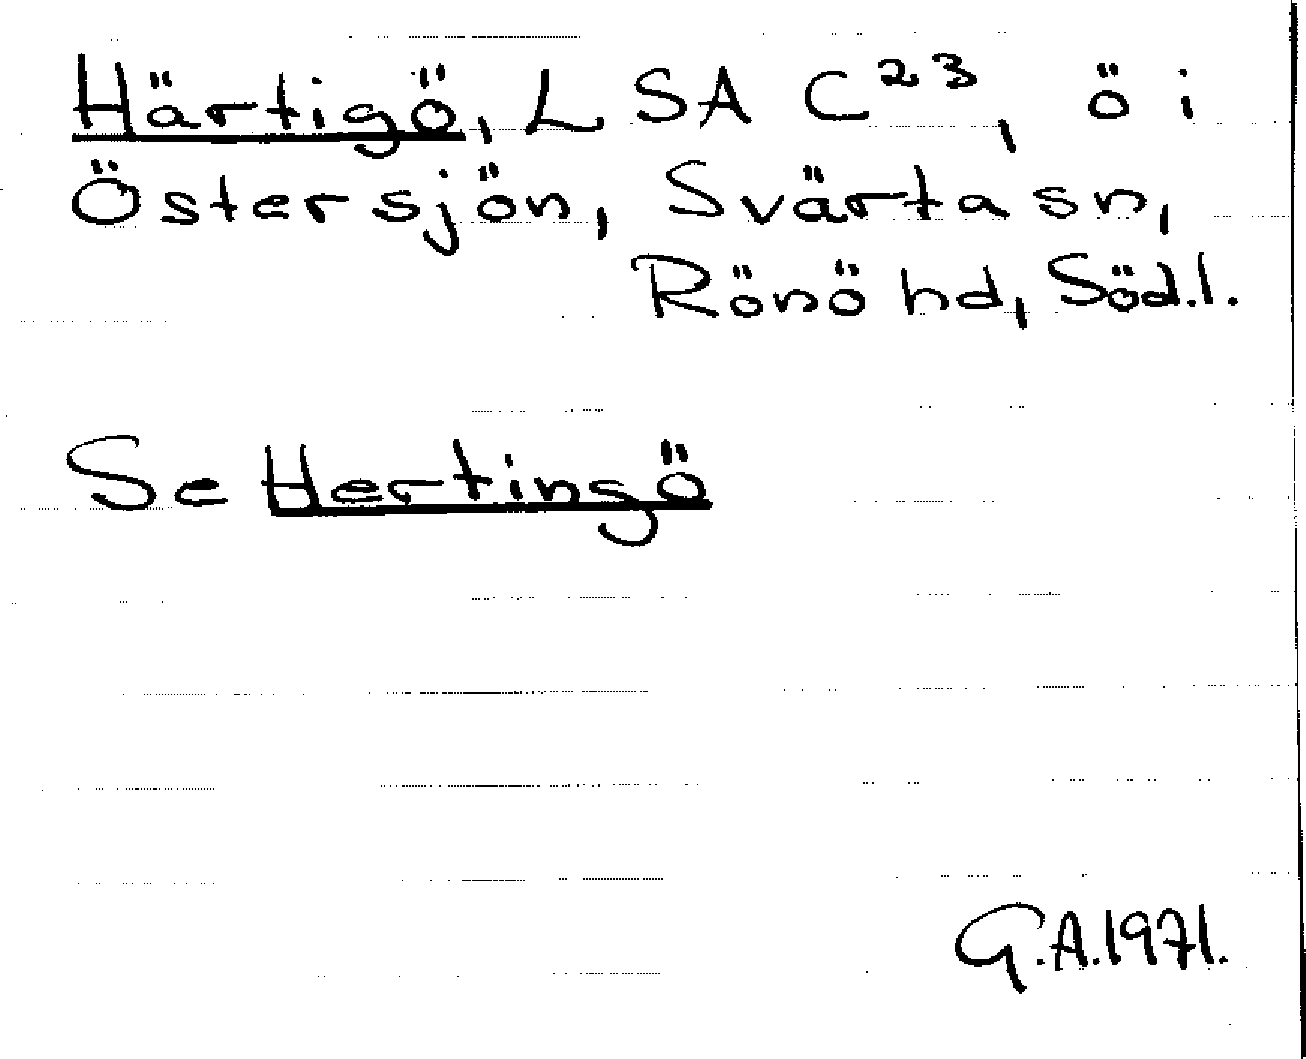 Härtigö, L SA C²³, ö i
Östersjön, Svärta sn,
Rönö hd, Söd.l.
Se Hertingö
G.A.1971.